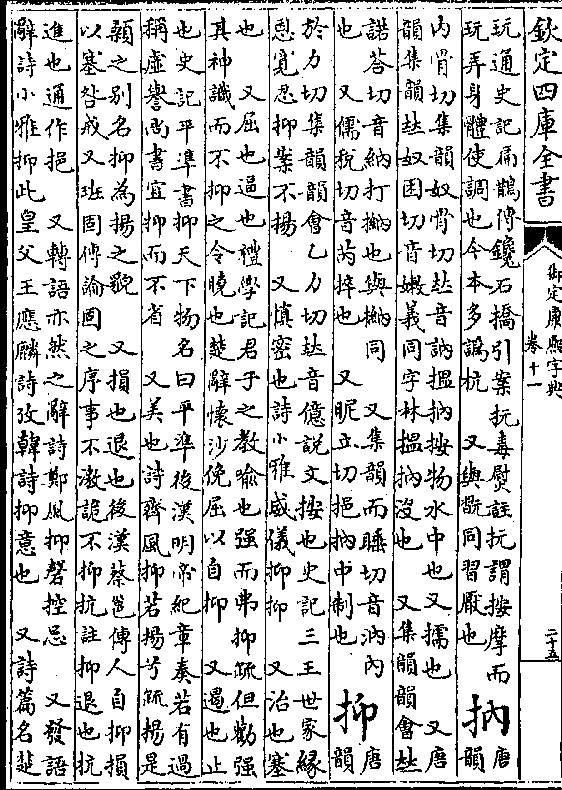 欽定四庫全書
御定康熙字典
卷十一
二十五
玩通史記扁鵲傳鑱石撟引案抏毒熨註抏謂按摩而
玩弄身體使調也今本多譌杭 又與翫同習厭也
抐
唐
韻
內骨切集韻奴骨切𠀤音訥搵抐按物水中也又擩也 又唐
韻集韻𠀤奴困切音嫩義同字林搵抐沒也 又集韻韻會𠀤
諾荅切音納打擸也與擸同 又集韻而睡切音汭內
也 又儒稅切音芮捽也 又昵立切挹抐中制也
抑
唐
韻
於力切集韻韻會乙力切𠀤音億說文按也史記三王世家緣
恩寬忍抑案不揚 又愼密也詩小雅威儀抑抑 又治也塞
也 又屈也逼也禮學記君子之教喩也强而弗抑疏但勸强
其神識而不抑之令曉也楚辭懷沙俛屈以自抑 又遏也止
也史記平準書抑天下物名曰平準後漢明帝紀章奏若有過
稱虛譽尚書宜抑而不省 又美也詩齊風抑若揚兮疏揚是
顙之别名抑爲揚之貌 又損也退也後漢蔡邕傳人自抑損
以塞咎戒又班固傳論固之序事不激詭不抑抗註抑退也抗
進也通作挹 又轉語亦然之辭詩鄭風抑磬控忌 又發語
辭詩小雅抑此皇父王應麟詩攷韓詩抑意也 又詩篇名楚